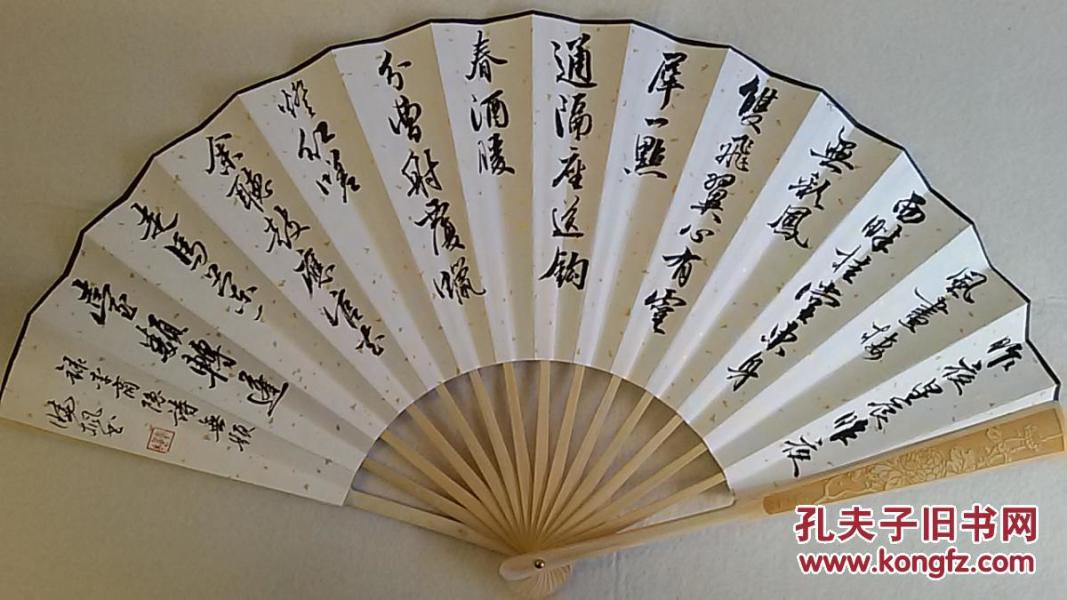 昨夜星辰昨夜
風畫樓
西畔桂堂東身
無彩鳳
雙飛翼心有靈
犀一點
通隔座送鉤
春酒暖
分曹射覆蠟
燈紅嗟
余聽鼓應官去
走馬蘭
臺類轉蓬
錄李商隱詩無題
孔夫子旧书网
www.kongfz.com